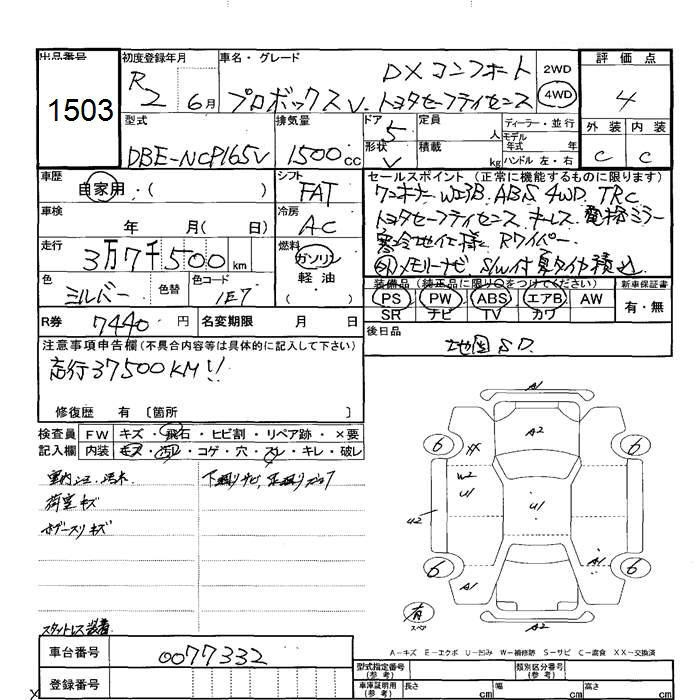 出品番号 初度登録年月 車名・グレード 評価点
1503
R2 6月
DXコンフォート
プロボックスV. トヨタセーフティセンス
2WD
4WD
4
型式 排気量 ドア 定員 ディーラー・並行 外装 内装
DBE-NCP165V 1500cc 5 人 モデル年式 年 C C
形状 V 積載 kg ハンドル 左・右
車歴 自家用・( ) シフト FAT
セールスポイント(正常に機能するものに限ります)
ワンオーナー W エアB. ABS 4WD. TRC
トヨタセーフティセンス. キーレス. 電格ミラー
寒冷地仕様 Rワイパー
外メモリーナビ S/W付 夏タイヤ積込
車検 年 月( 日) 冷房 AC
走行 3万7千500km 燃料 ガソリン 軽油 ( )
色 シルバー 色替 色コード 1E7
装備品(純正品に限り○をつけてください) 新車保証書
PS PW ABS エアB AW 有・無
SR ナビ TV カワ
R券 7440円 名変期限 月 日
後日品
地図SD
注意事項申告欄(不具合内容等は具体的に記入して下さい)
走行37500KM!!
修復歴 有 〔箇所 〕
検査員 FW キズ・飛石・ヒビ割・リペア跡・×要
記入欄 内装 キズ・汚れ・コゲ・穴・スレ・キレ・破レ
荷室キズ
スタットレス装着
A1
A2
6 XX 6
W2
U1 U1
U2
6 A1 A1 6
有
スペア
A2
A-キズ E-エクボ U-凹み W-補修跡 S-サビ C-腐食 XX-交換済
車台番号 0077332
登録番号
型式指定番号(参考) 類別区分番号(参考)
車庫証明用(参考) 長さ cm 幅 cm 高さ cm